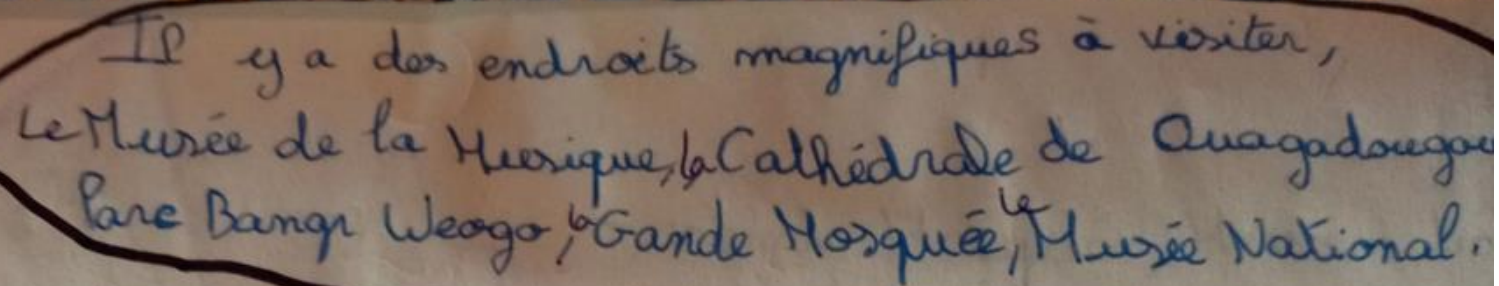 Il y a des endroits magnifiques à visiter,
Le Musée de la Musique, la Cathédrale de Ouagadougou
Parc Bangr Weogo, la Gande Mosquée, le Musée National.